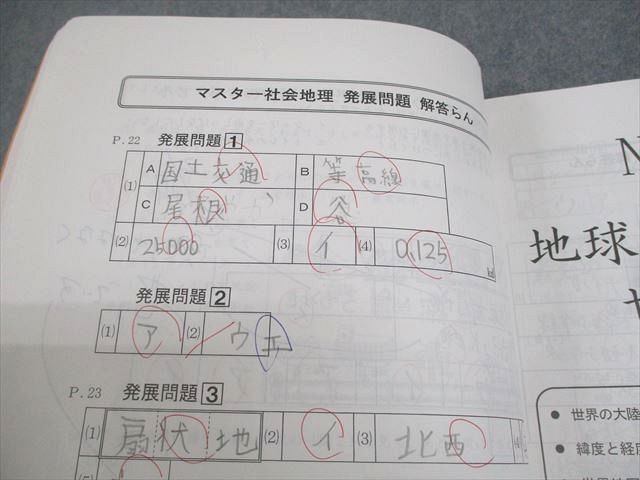 マスター社会地理 発展問題 解答らん
P.22 発展問題 1
(1) A 国土交通 B 等高線
C 尾根 D 谷
(2) 25000 (3) イ (4) 0.125
発展問題 2
(1) ア (2) ウ エ
P.23 発展問題 3
(1) 扇状地 (2) イ (3) 北西
(5)
地球
● 世界の大陸
● 緯度と経度